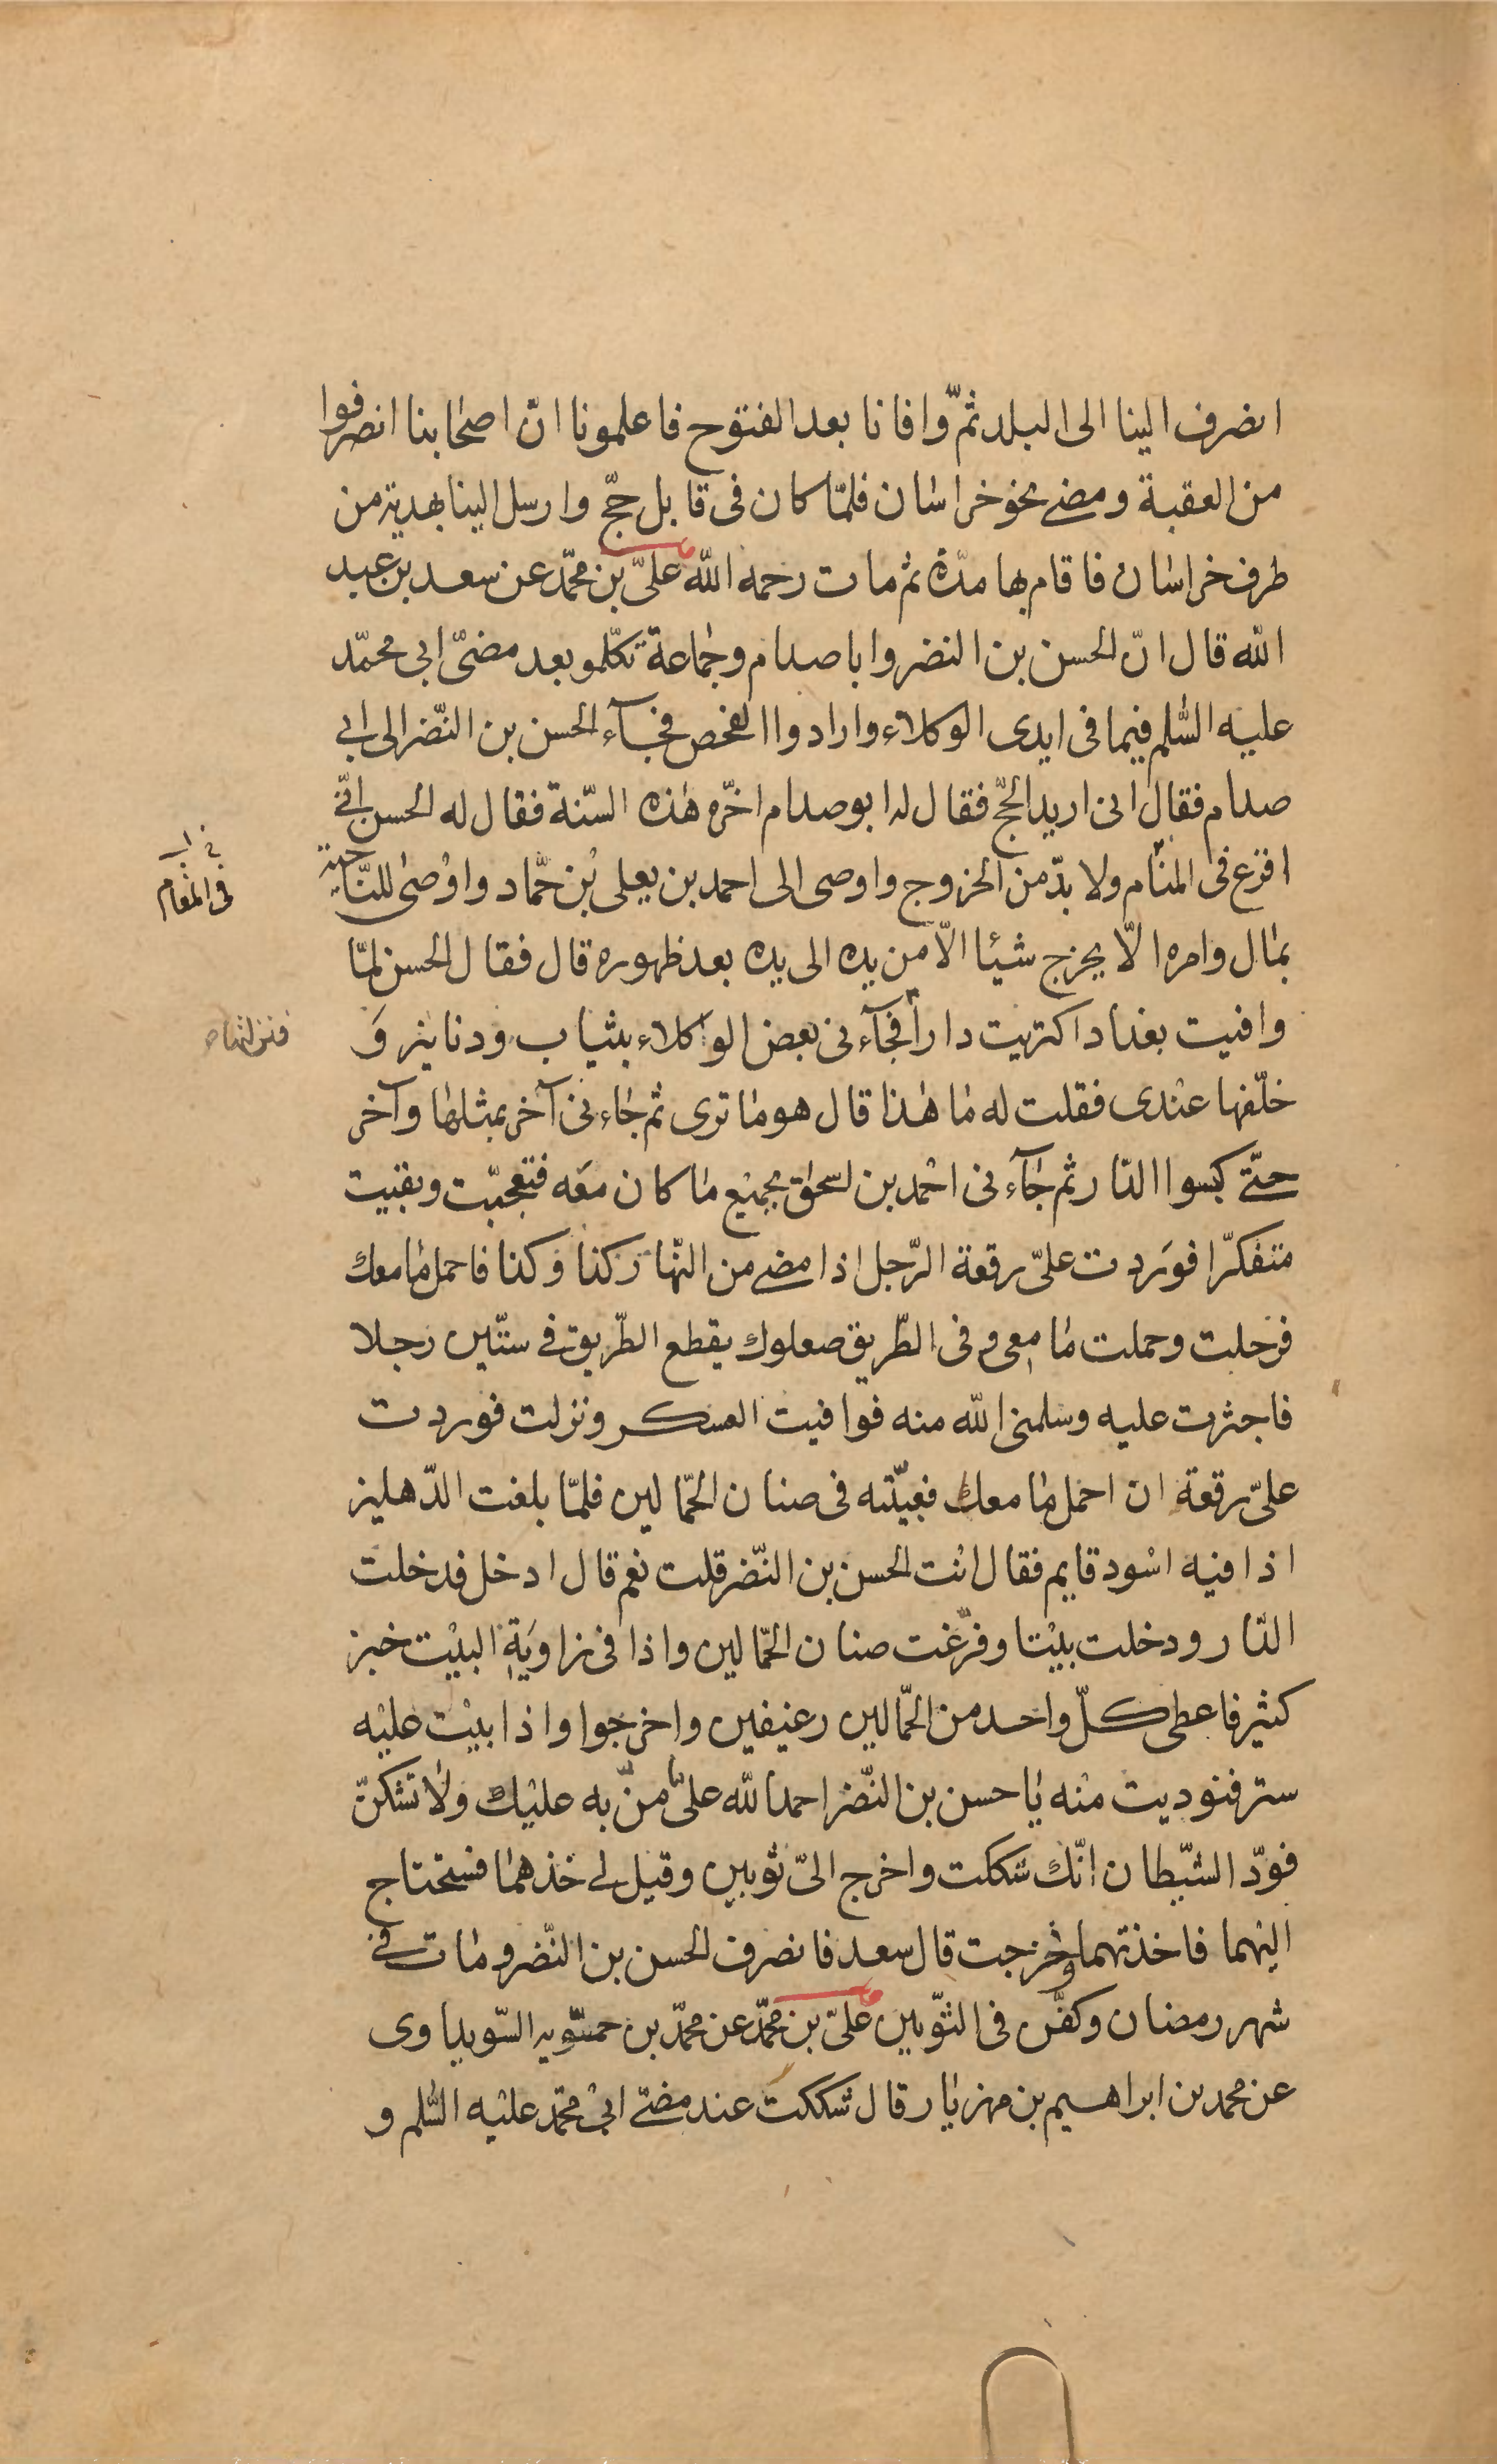 انصرف الینا الى البلد ثمّ وافانا بعد الفتوح فاعلمونا انّ اصحابنا انصرفوا
من العقبة ومضى نحو خراسان فلمّا كان فى قابل حجّ وارسل الینا بهدیة من
طرف خراسان فاقام بها مدّة ثم مات رحمه اللّه علىّ بن محمّد عن سعد بن عبد
اللّه قال انّ الحسن بن النضر وابا صدام وجماعة تكلّمو بعد مضىّ ابى محمّد
علیه السّلم فیما فى ایدى الوكلاء وارادوا الفحص فجآء الحسن بن النّضر الى ابى
صدام فقال انى ارید الحجّ فقال له ابو صدام اخّره هذه السّنة فقال له الحسن انّى
افزع فى المنام ولا بدّ من الخروج واوصى الى احمد بن یعلى بن حمّاد واوصى للنّاحیة
فى المقام
بمال وامره الّا یخرج شیئا الّا من یده الى یده بعد ظهوره قال فقال الحسن لمّا
وافیت بغداد اكتریت دارا فجآءنى بعض الوكلاء بثیاب ودنانیر وَ
خلّفها عندى فقلت له ما هذا قال هو ما ترى ثم جاءنى آخر بمثلها وآخر
حتّى كبسوا الدّار ثم جآءنى احمد بن اسحاق بجمیع ما كان معه فتعجّبت وبقیت
متفكّرا فوردت علىّ رقعة الرّجل اذا مضى من النّهار كذا وكذا فاحمل ما معك
فرحلت وحملت ما معى وفى الطّریق صعلوك یقطع الطّریق فى ستّین رجلا
فاجتزت علیه وسلمنى اللّه منه فوافیت العسكر ونزلت فوردت
علىّ رقعة ان احمل ما معك فعبّیته فى صنان الحمّالین فلمّا بلغت الدّهلیز
اذا فیه اسود قایم فقال انت الحسن بن النّضر قلت نعم قال ادخل فدخلت
الدّار ودخلت بیتا وفرّغت صنان الحمّالین واذا فى زاویة البیت خبز
كثیر فاعطى كلّ واحد من الحمّالین رغیفین واخرجوا واذا بیت علیه
ستر فنودیت منه یا حسن بن النّضر احمد اللّه على ما منّ به علیك ولا تشكنّ
فودّ الشّیطان انّك شككت واخرج الىّ ثوبین وقیل لى خذهما فستحتاج
الیهما فاخذتهما وخرجت قال سعد فانصرف الحسن بن النّضر ومات فى
شهر رمضان وكفّن فى الثّوبین علىّ بن محمّد عن محمّد بن حمّویه السّویداوى
عن محمد بن ابراهیم بن مهزیار قال شككت عند مضىّ ابى محمّد علیه السّلم و